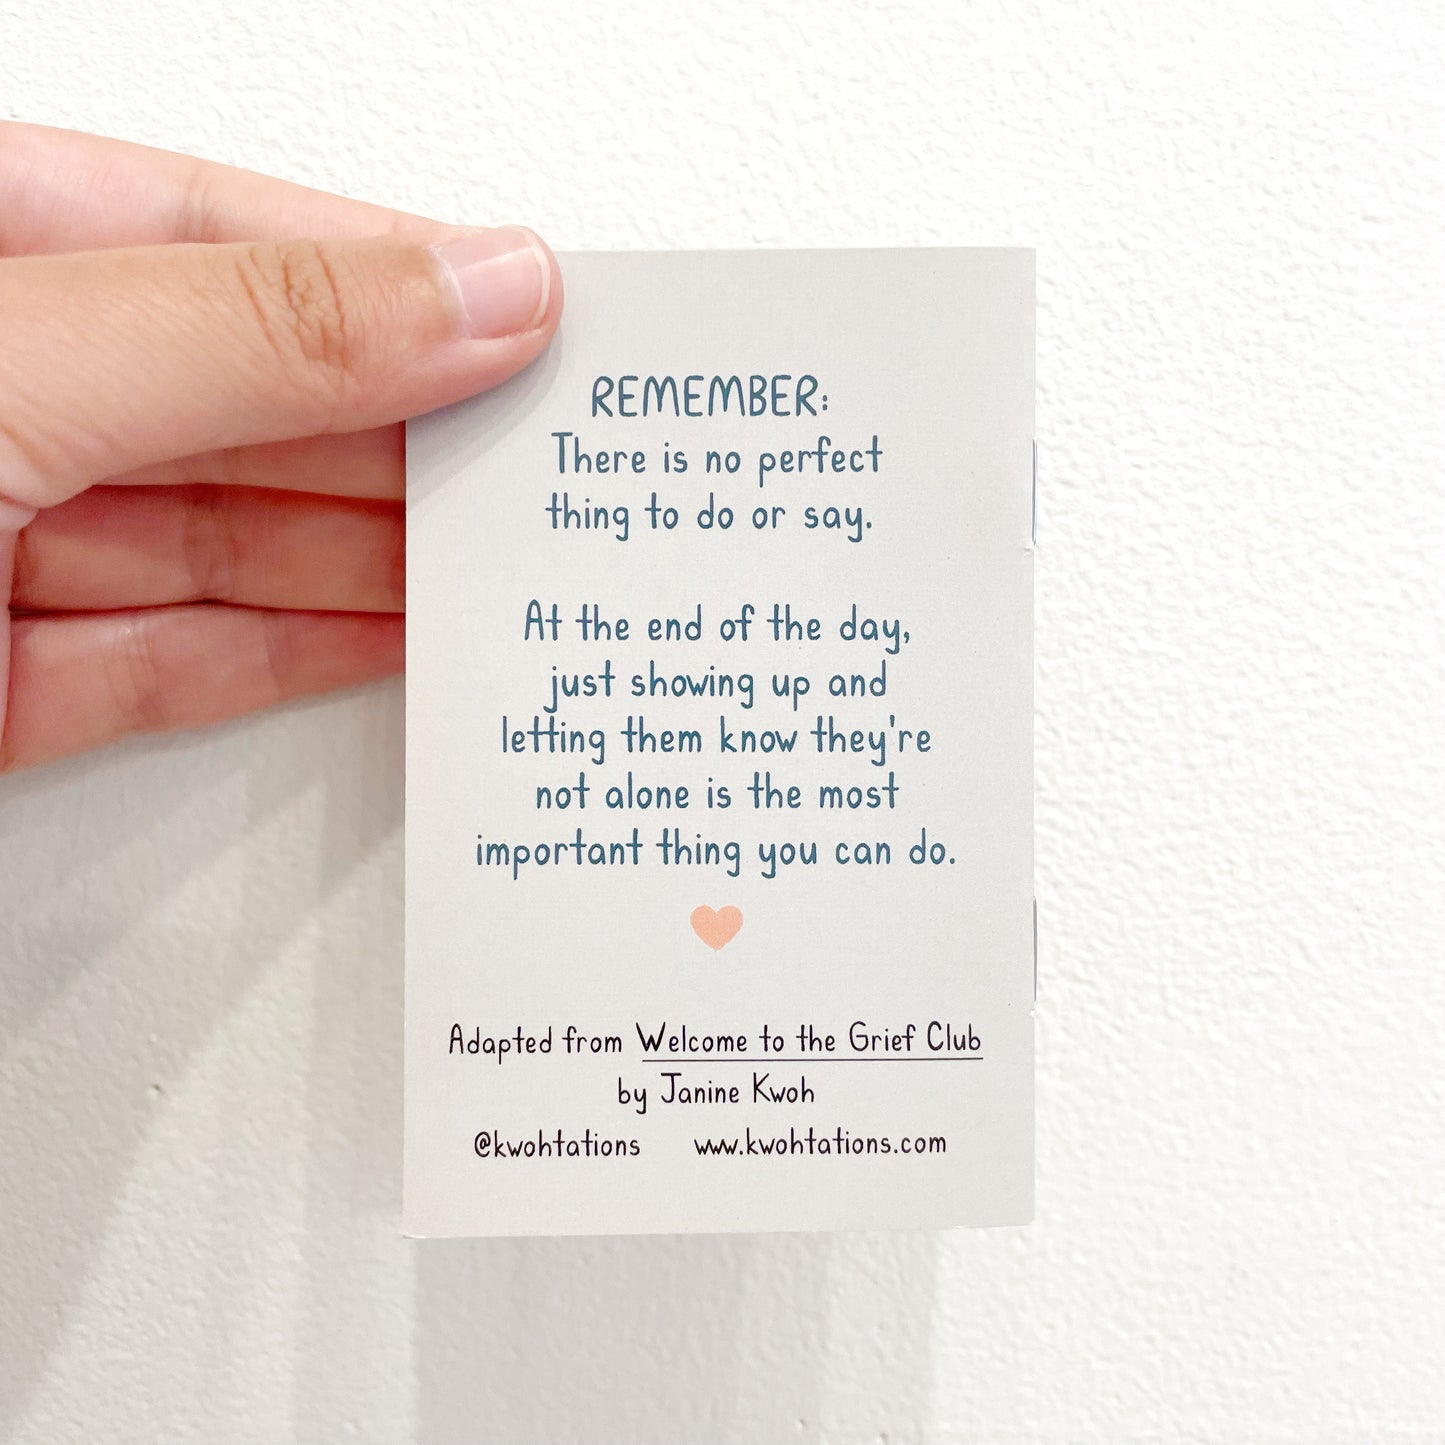 REMEMBER:
There is no perfect
thing to do or say.
At the end of the day,
just showing up and
letting them know they're
not alone is the most
important thing you can do.
Adapted from Welcome to the Grief Club
by Janine Kwoh
@kwohtations www.kwohtations.com